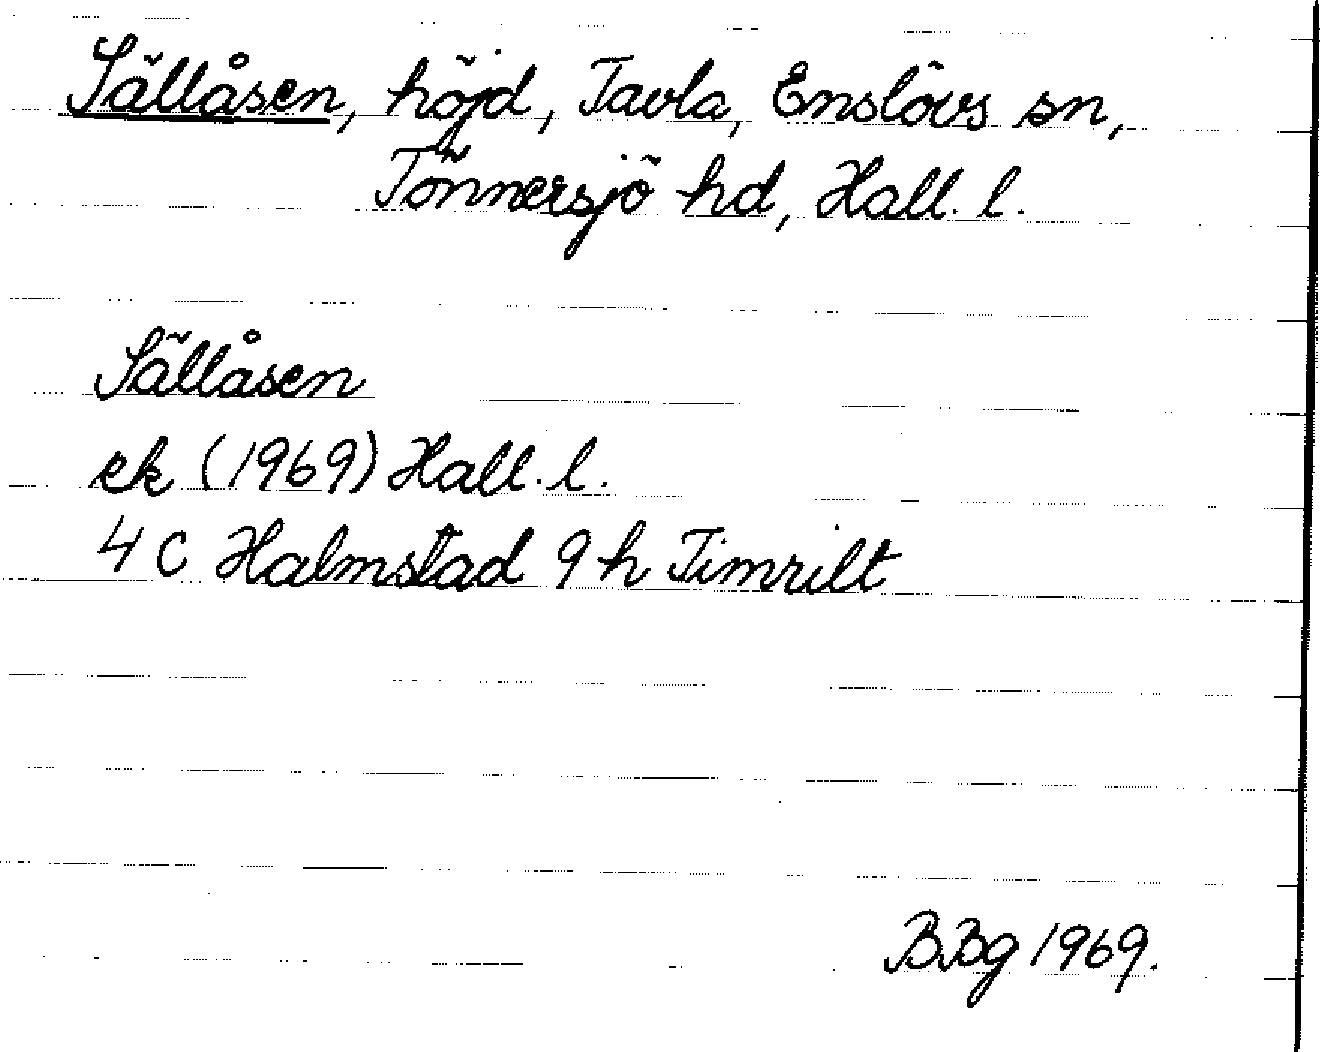 Sällåsen, höjd, Tavla, Enslövs sn,
Tönnersjö hd, Hall. l.
Sällåsen
ek (1969) Hall. l.
4 C Halmstad 9 h Timrilt
BBg 1969.